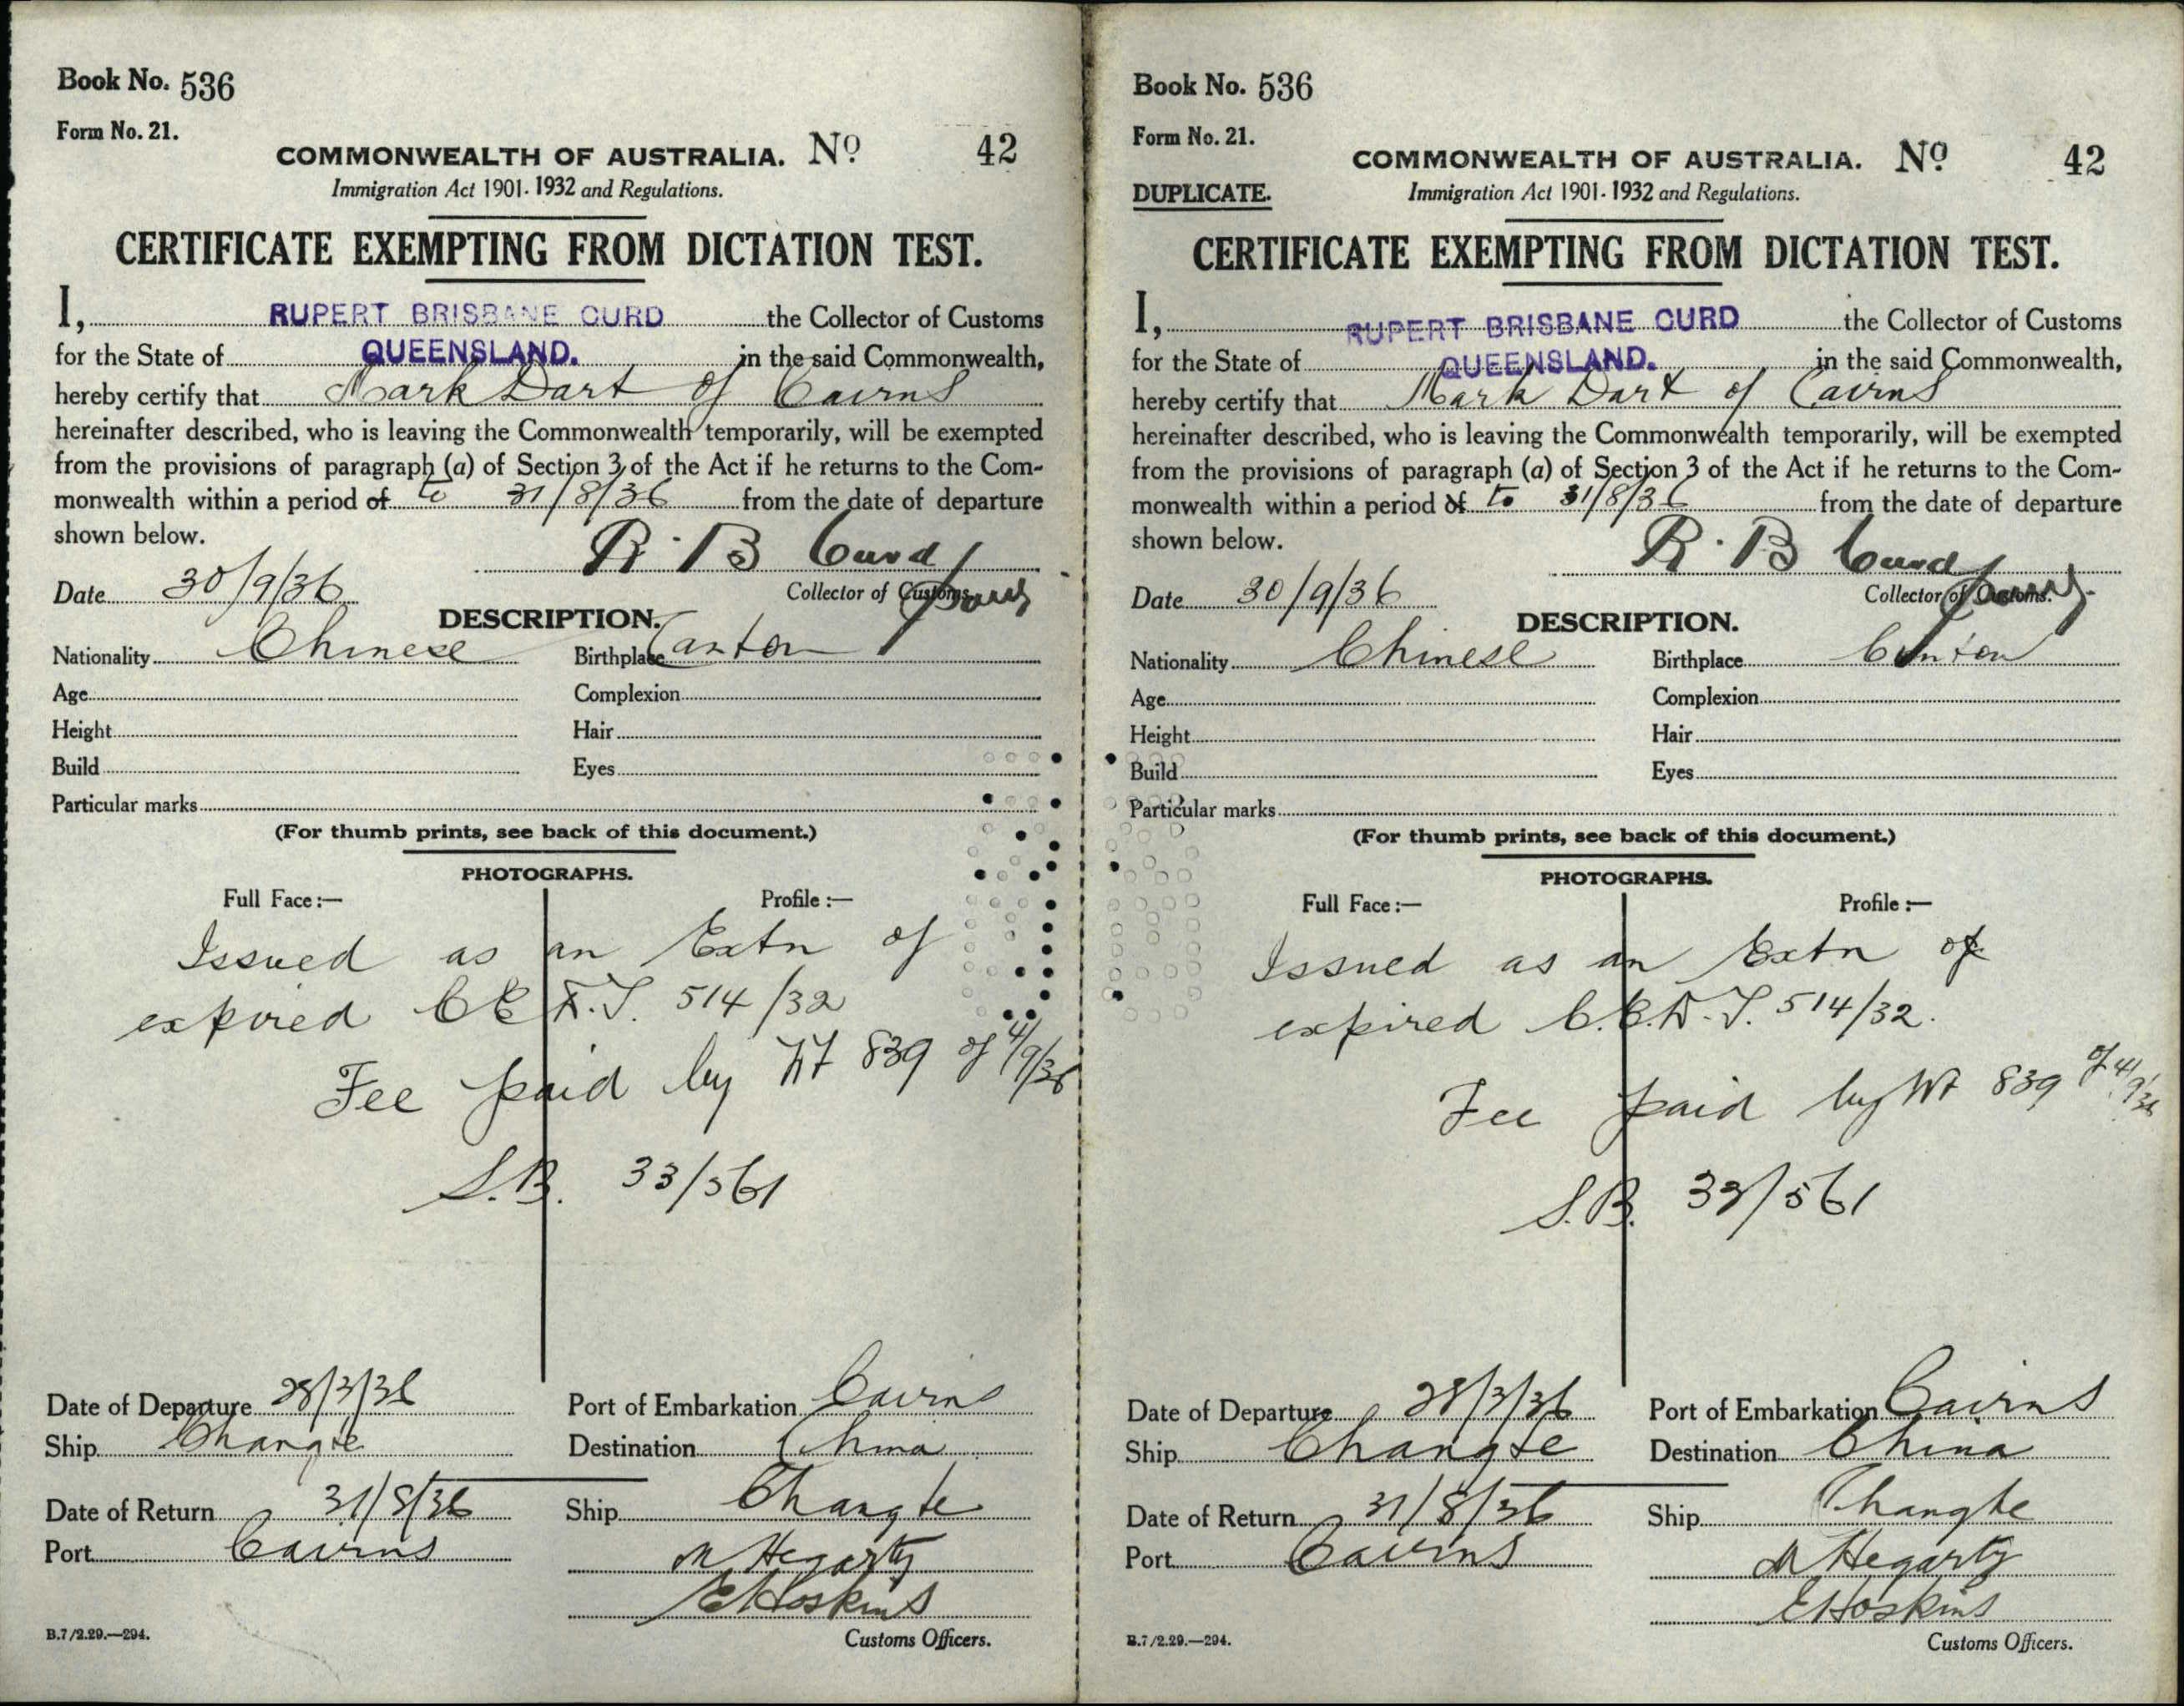 Book No. 536
Form No. 21.
COMMONWEALTH OF AUSTRALIA. No 42
Immigration Act 1901-1932 and Regulations.
CERTIFICATE EXEMPTING FROM DICTATION TEST.
I, RUPERT BRISBANE CURD the Collector of Customs
for the State of QUEENSLAND. in the said Commonwealth,
hereby certify that Mark Dart of Cairns
hereinafter described, who is leaving the Commonwealth temporarily, will be exempted
from the provisions of paragraph (a) of Section 3 of the Act if he returns to the Com-
monwealth within a period of to 31/8/36 from the date of departure
shown below.
R. B Curd
Date 30/9/36 Collector of Customs
DESCRIPTION.
Nationality Chinese Birthplace Canton
Age Complexion
Height Hair
Build Eyes
Particular marks
(For thumb prints, see back of this document.)
PHOTOGRAPHS.
Full Face:— Profile:—
Issued as an Extn of
expired C.E.D.T. 514/32
Fee paid by 839 of 4/9/36
S.B. 33/561
Date of Departure 28/3/36 Port of Embarkation Cairns
Ship Changte Destination China
Date of Return 31/8/36 Ship Changte
Port Cairns M Hegarty
E Hoskins
B.7/2.29.—294. Customs Officers.
Book No. 536
Form No. 21.
COMMONWEALTH OF AUSTRALIA. No 42
DUPLICATE. Immigration Act 1901-1932 and Regulations.
CERTIFICATE EXEMPTING FROM DICTATION TEST.
I, RUPERT BRISBANE CURD the Collector of Customs
for the State of QUEENSLAND. in the said Commonwealth,
hereby certify that Mark Dart of Cairns
hereinafter described, who is leaving the Commonwealth temporarily, will be exempted
from the provisions of paragraph (a) of Section 3 of the Act if he returns to the Com-
monwealth within a period of to 31/8/36 from the date of departure
shown below.
R. B Curd
Date 30/9/36 Collector of Customs.
DESCRIPTION.
Nationality Chinese Birthplace Canton
Age Complexion
Height Hair
Build Eyes
Particular marks
(For thumb prints, see back of this document.)
PHOTOGRAPHS.
Full Face:— Profile:—
Issued as an Extn of
expired C.E.D.T. 514/32.
Fee paid by 839 of 4/9/36
S.B. 33/561
Date of Departure 28/3/36 Port of Embarkation Cairns
Ship Changte Destination China
Date of Return 31/8/36 Ship Changte
Port Cairns M Hegarty
E Hoskins
B.7/2.29.—294. Customs Officers.